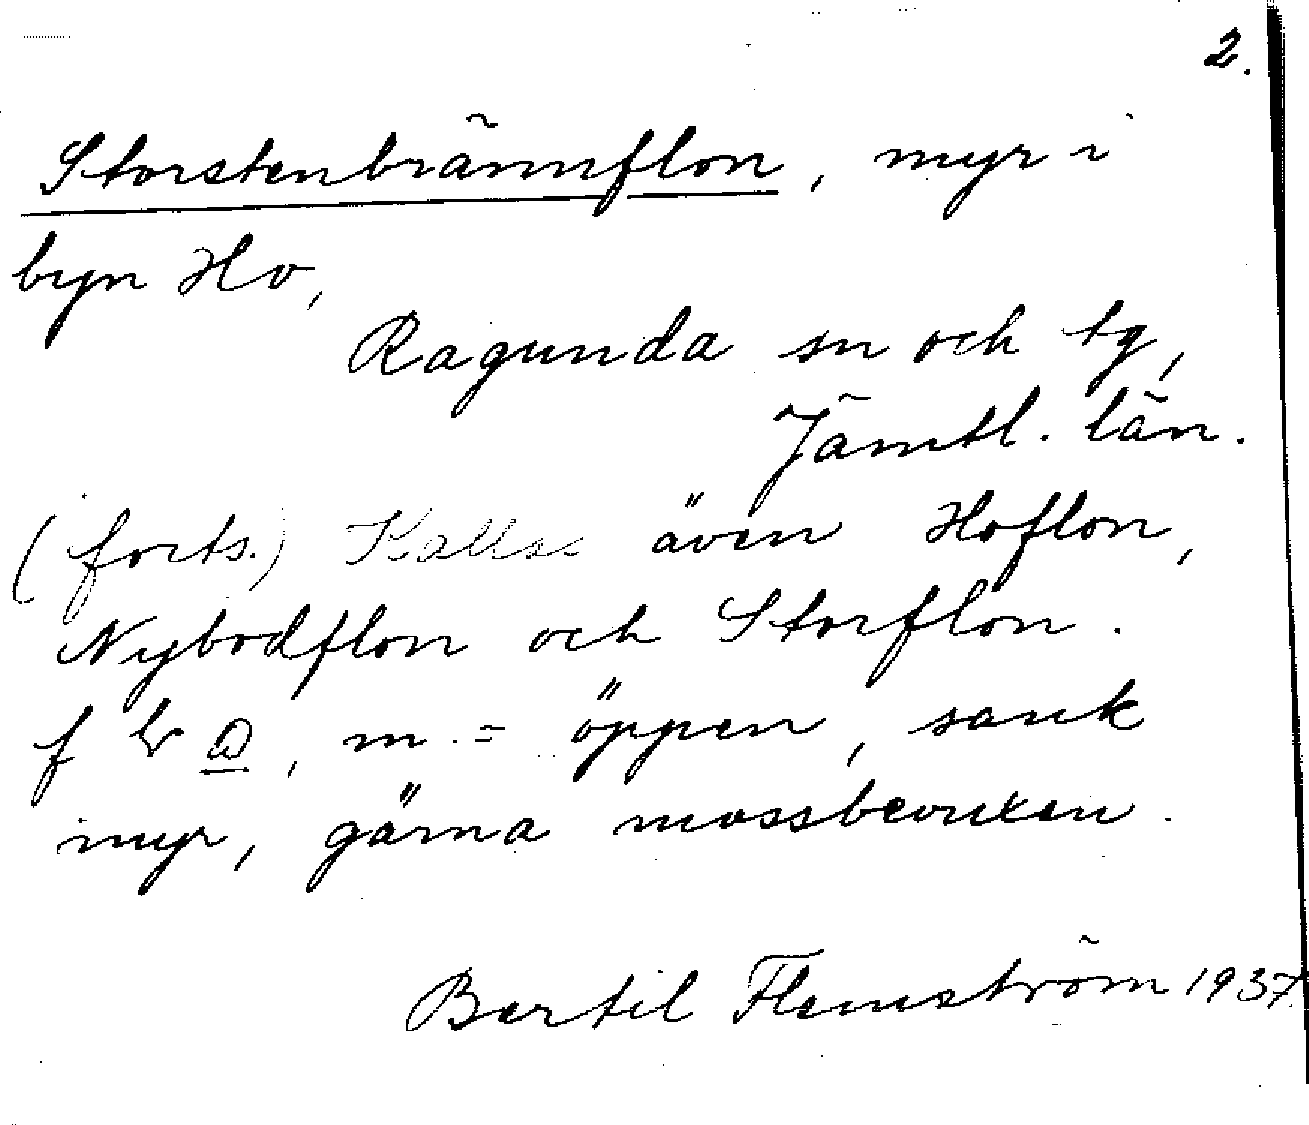 2.
Storstenbrännflon, myr i
byn Hv,
Ragunda sn och tg,
Jämtl. län.
(forts.) Kallas även Hoflon,
Nybodflon och Storflon.
f m. = öppen, sank
myr, gärna mossbevuxen.
Bertil Flemström 1937